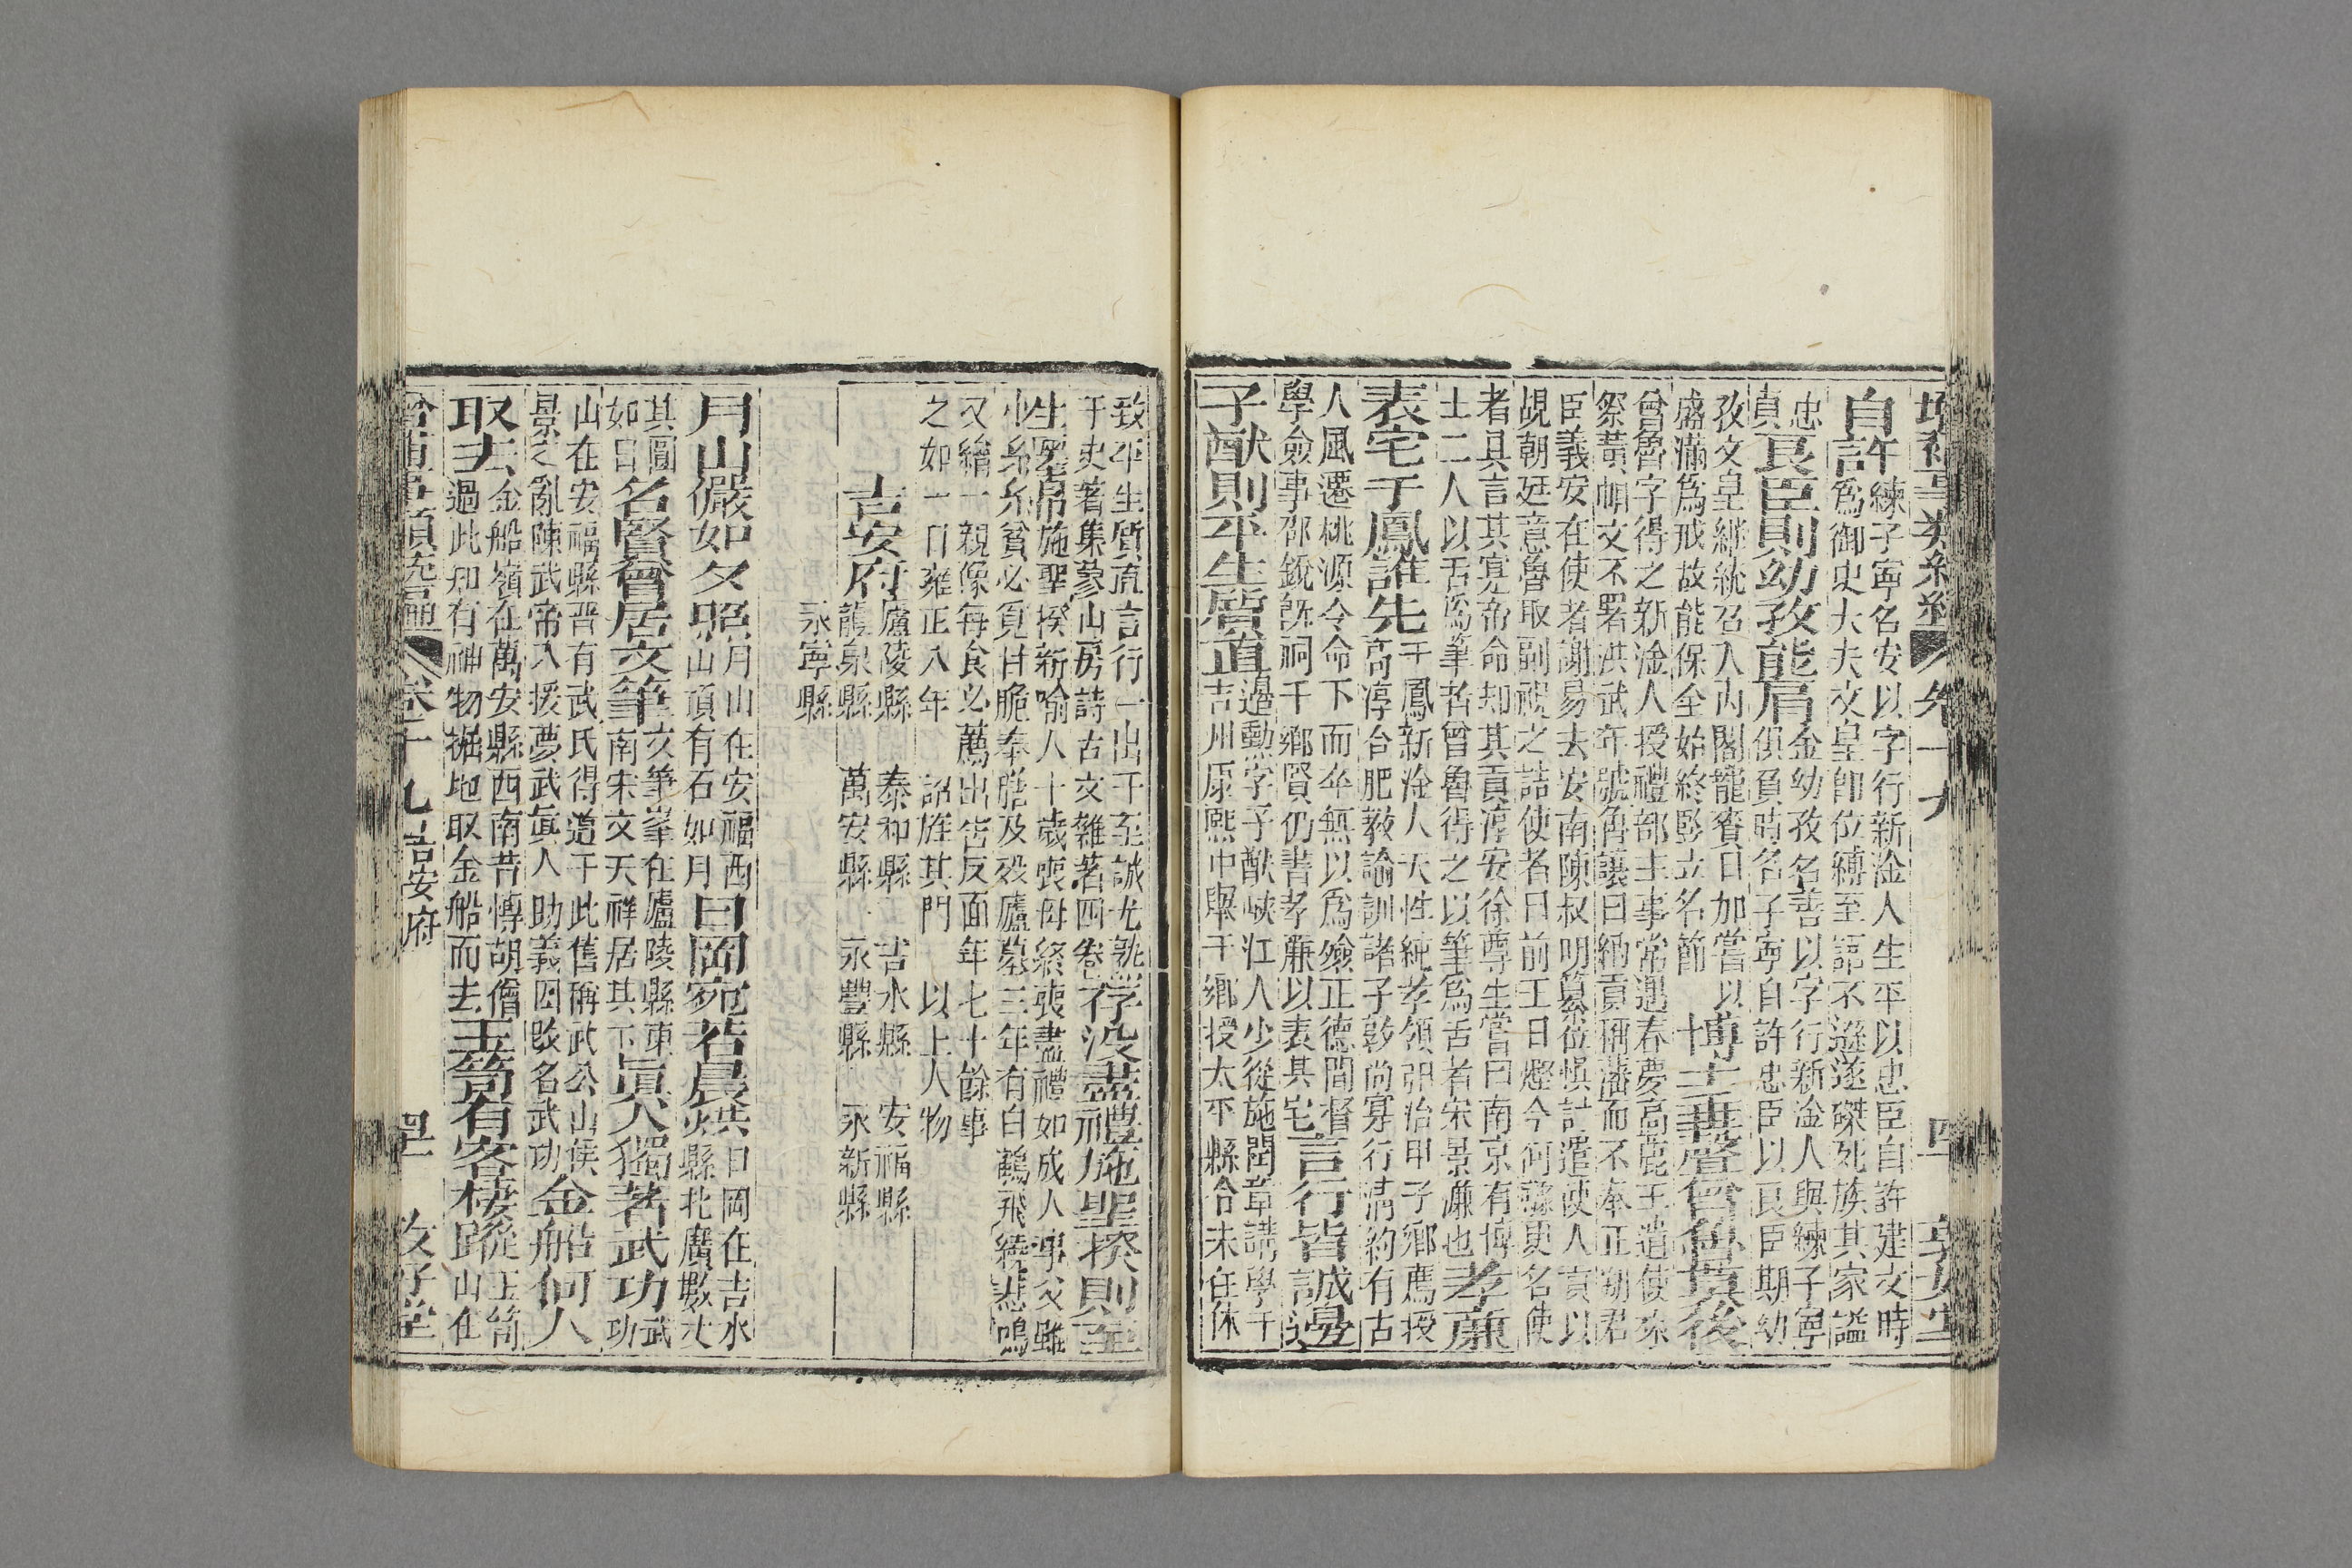 卷十九
自許練子寧名安以字行新淦人生平以忠臣自許建文時
爲御史大夫文皇卽位縛至語不遜遂磔死族其家謚
忠
貞良臣則幼孜能肩金幼孜名善以字行新淦人與練子寧
俱負時名子寧自許忠臣以良臣期幼
孜文皇繼統召入內閣寵賚日加嘗以
盛滿爲戒故能保全始終卧立名節博士甚聲曾魯慎後
曾魯字得之新淦人授禮部主事常遇春薨高麗王遣使來
祭黃帕文不署洪武年號魯讓曰納貢稱藩而不奉正朔君
臣義安在使者謝易去安南陳叔明篡位懼討遣使入貢以
覘朝廷意魯取副視之詰使者曰前王日熞今何驟更名使
者具言其寔帝命却其貢淳安徐尊生嘗曰南京有博
士二人以舌爲筆者曾魯得之以筆爲舌者宋景濂也孝廉
表宅于鳳誰先于鳳新淦人天性純孝領弘治甲子鄉薦授
高淳合肥敎諭訓諸子敦尚寡行淸約有古
人風遷桃源令命下而卒無以爲殮正德間督
學僉事邵銳旣祠于鄉賢仍書孝廉以表其宅言行皆誠邊
子猷則平生質直邊勲字子猷峽江人少從施閏章講學于
吉州康熙中舉于鄉授太平縣令未任休
致平生質直言行一出于至誠尤孰
于史著集蒙山房詩古文雜著四卷存沒盡禮施聖揆則至
性堅常施聖揆新喻人十歲喪母終喪盡禮如成人事父雖
小弟弟貧必覓甘脆奉膳及殁廬墓三年有白鶴飛繞悲鳴
又繪一親像每食必薦出告反面年七十餘事
之如一日雍正八年　詔旌其門　以上人物
吉安府廬陵縣　泰和縣　吉水縣　安福縣
龍泉縣　萬安縣　永豐縣　永新縣
永寧縣
月山儼如夕照月山在安福西
山頂有石如月日岡宛若晨烘日岡在吉水
縣北廣數丈
其圓
如日名賢會居文筆文筆峯在廬陵縣東
南宋文天祥居其下眞人獨著武功武
功
山在安福縣晋有武氏得道于此舊稱武公山侯
景之亂陳武帝入援夢武眞人助義因改名武功金船何人
取去金船嶺在萬安縣西南昔傳胡僧
過此知有神物掘地取金船而去玉笥有客棲蹤玉笥
山在
卷十九　吉安府